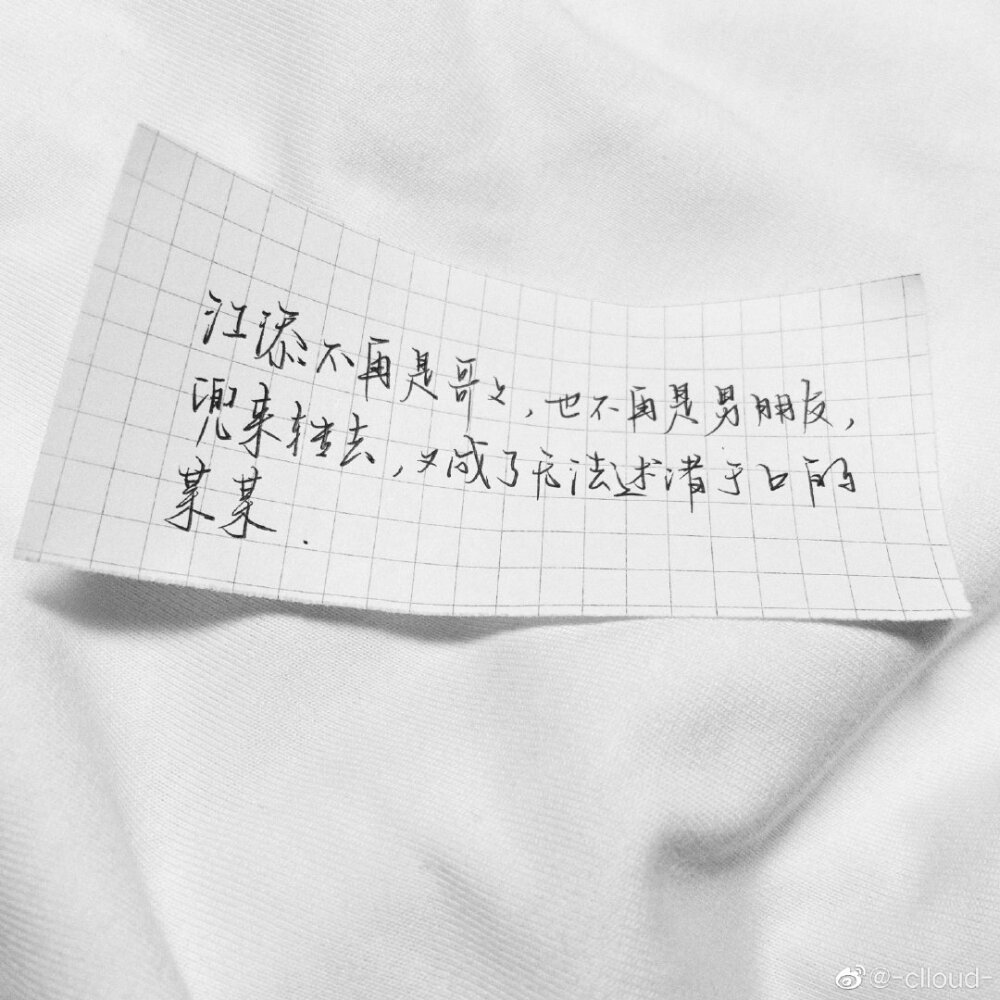 江添不再是哥々，也不再是男朋友，
兜来转去，又成了无法述诸于口的
某某.
@-clloud-